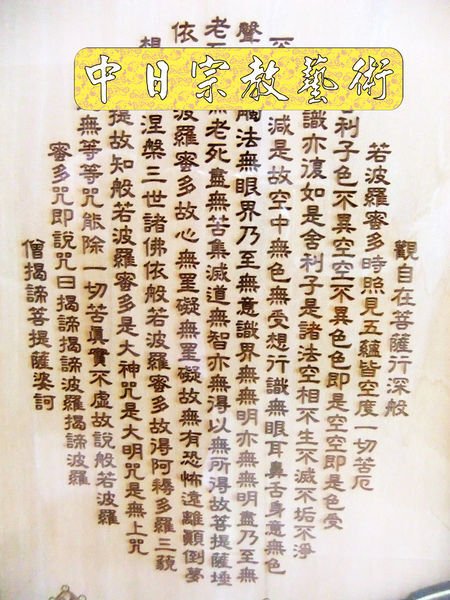 中日宗教藝術
觀自在菩薩行深般
若波羅蜜多時照見五蘊皆空度一切苦厄
利子色不異空空不異色色即是空空即是色受
識亦復如是舍利子是諸法空相不生不滅不垢不淨
減是故空中無色無受想行識無眼耳鼻舌身意無色
聲 觸法無眼界乃至無意識界無無明亦無無明盡乃至無
老 無老死盡無苦集滅道無智亦無得以無所得故菩提薩埵
依 波羅蜜多故心無罣礙無罣礙故無有恐怖遠離顛倒夢
想 涅槃三世諸佛依般若波羅蜜多故得阿耨多羅三藐
提故知般若波羅蜜多是大神咒是大明咒是無上咒
無等等咒能除一切苦真實不虛故說般若波羅
蜜多咒即說咒曰揭諦揭諦波羅揭諦波羅
僧揭諦菩提薩婆訶